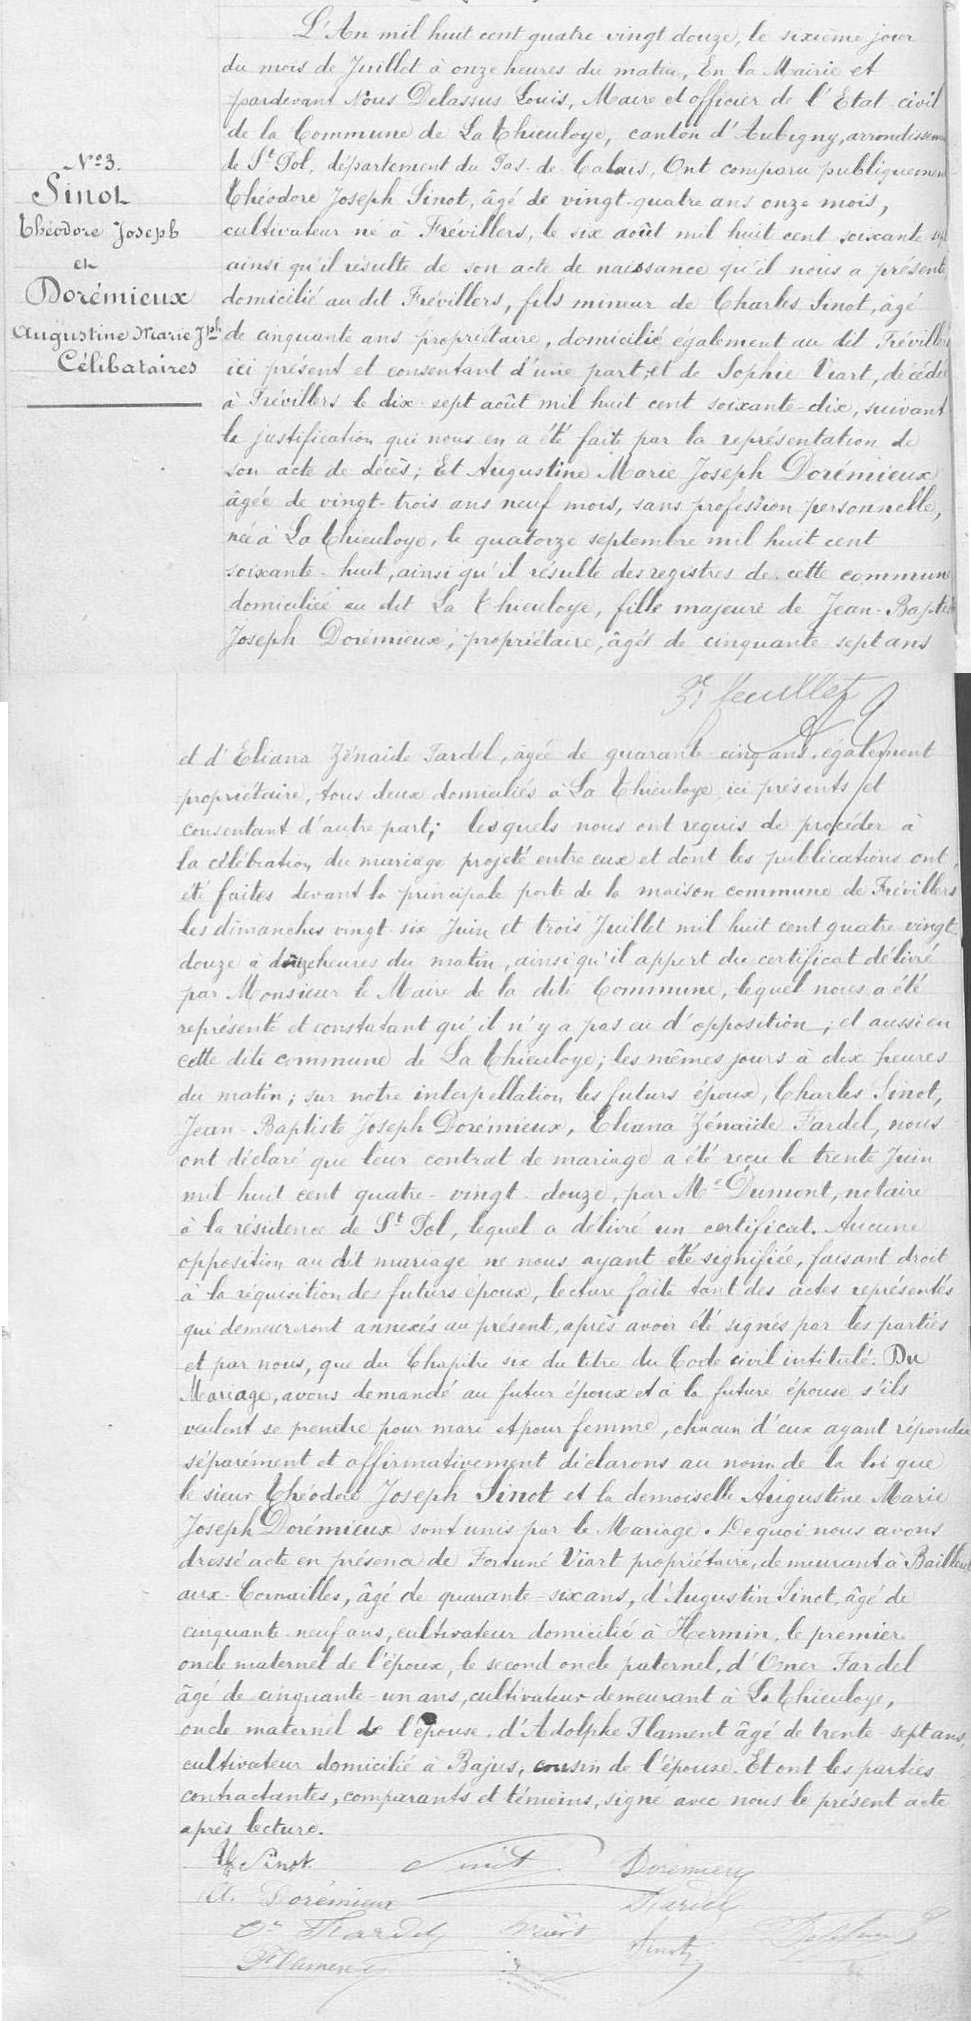 L'An mil huit cent quatre vingt douze, le sixième jour
du mois de Juillet à onze heures du matin, En la Mairie et
pardevant Nous Delassus Louis, Maire et officier de l'Etat civil
de la Commune de La Thieuloye, canton d'Aubigny, arrondissem
de St Pol, département du Pas-de-Calais, Ont comparu publiquement
Théodore Joseph Sinot, âgé de vingt-quatre ans onze mois,
cultivateur né à Frévillers, le six août mil huit cent soixante sept
ainsi qu'il résulte de son acte de naissance qu'il nous a présenté
domicilié au dit Frévillers, fils mineur de Charles Sinot, âgé
de cinquante ans propriétaire, domicilié également au dit Frévillers
ici présent et consentant d'une part; et de Sophie Viart, décédée
à Frévillers le dix-sept août mil huit cent soixante-dix, suivant
la justification qui nous en a été faite par la représentation de
son acte de décès; Et Augustine Marie Joseph Dorémieux
âgée de vingt-trois ans neuf mois, sans profession personnelle,
née à La Thieuloye, le quatorze septembre mil huit cent
soixante-huit, ainsi qu'il résulte des registres de cette commune
domiciliée au dit La Thieuloye, fille majeure de Jean-Baptiste
Joseph Dorémieux, propriétaire, âgés de cinquante sept ans
No 3.
Sinot
Théodore Joseph
et
Dorémieux
Augustine Marie Jph
Célibataires
3e feuillet
et d'Eliana Zénaïde Fardel, âgée de quarante-cinq ans, également
propriétaire, tous deux domiciliés à La Thieuloye ici présents et
consentant d'autre part; lesquels nous ont requis de procéder à
la célébration du mariage projeté entre eux et dont les publications ont
été faites devant la principale porte de la maison commune de Frévillers
les dimanches vingt-six Juin et trois Juillet mil huit cent quatre vingt
douze à heures du matin, ainsi qu'il appert du certificat délivré
par Monsieur le Maire de la dite Commune, lequel nous a été
représenté et constatant qu'il n'y a pas eu d'opposition; et aussi en
cette dite commune de La Thieuloye; les mêmes jours à dix heures
du matin; sur notre interpellation les futurs époux, Charles Sinot,
Jean-Baptiste Joseph Dorémieux, Eliana Zénaïde Fardel, nous
ont déclaré que leur contrat de mariage a été reçu le trente Juin
mil huit cent quatre-vingt-douze, par Me Dumont, notaire
à la résidence de St Pol, lequel a délivré un certificat. Aucune
opposition au dit mariage ne nous ayant été signifiée, faisant droit
à la réquisition des futurs époux, lecture faite tant des actes représentés
qui demeureront annexés au présent, après avoir été signés par les parties
et par nous, que du Chapitre six du titre du Code civil intitulé: Du
Mariage, avons demandé au futur époux et à la future épouse s'ils
veulent se prendre pour mari et pour femme, chacun d'eux ayant répondu
séparément et affirmativement déclarons au nom de la loi que
le sieur Théodore Joseph Sinot et la demoiselle Augustine Marie
Joseph Dorémieux sont unis par le Mariage. De quoi nous avons
dressé acte en présence de Fortuné Viart propriétaire, demeurant à Bailleul
aux-Cornailles, âgé de quarante-six ans, d'Augustin Sinot, âgé de
cinquante-neuf ans, cultivateur domicilié à Hermin, le premier
oncle maternel de l'époux, le second oncle paternel, d'Omer Fardel
âgé de cinquante-un ans, cultivateur demeurant à La Thieuloye,
oncle maternel de l'épouse, d'Adolphe Flament âgé de trente-sept ans,
cultivateur domicilié à Bajus, cousin de l'épouse. Et ont les parties
contractantes, comparants et témoins, signé avec nous le présent acte
après lecture.
Sinot. Sinot Dorémieux
A. Dorémieux Fardel
Or Fardel Viart Sinot Delassus
Flament